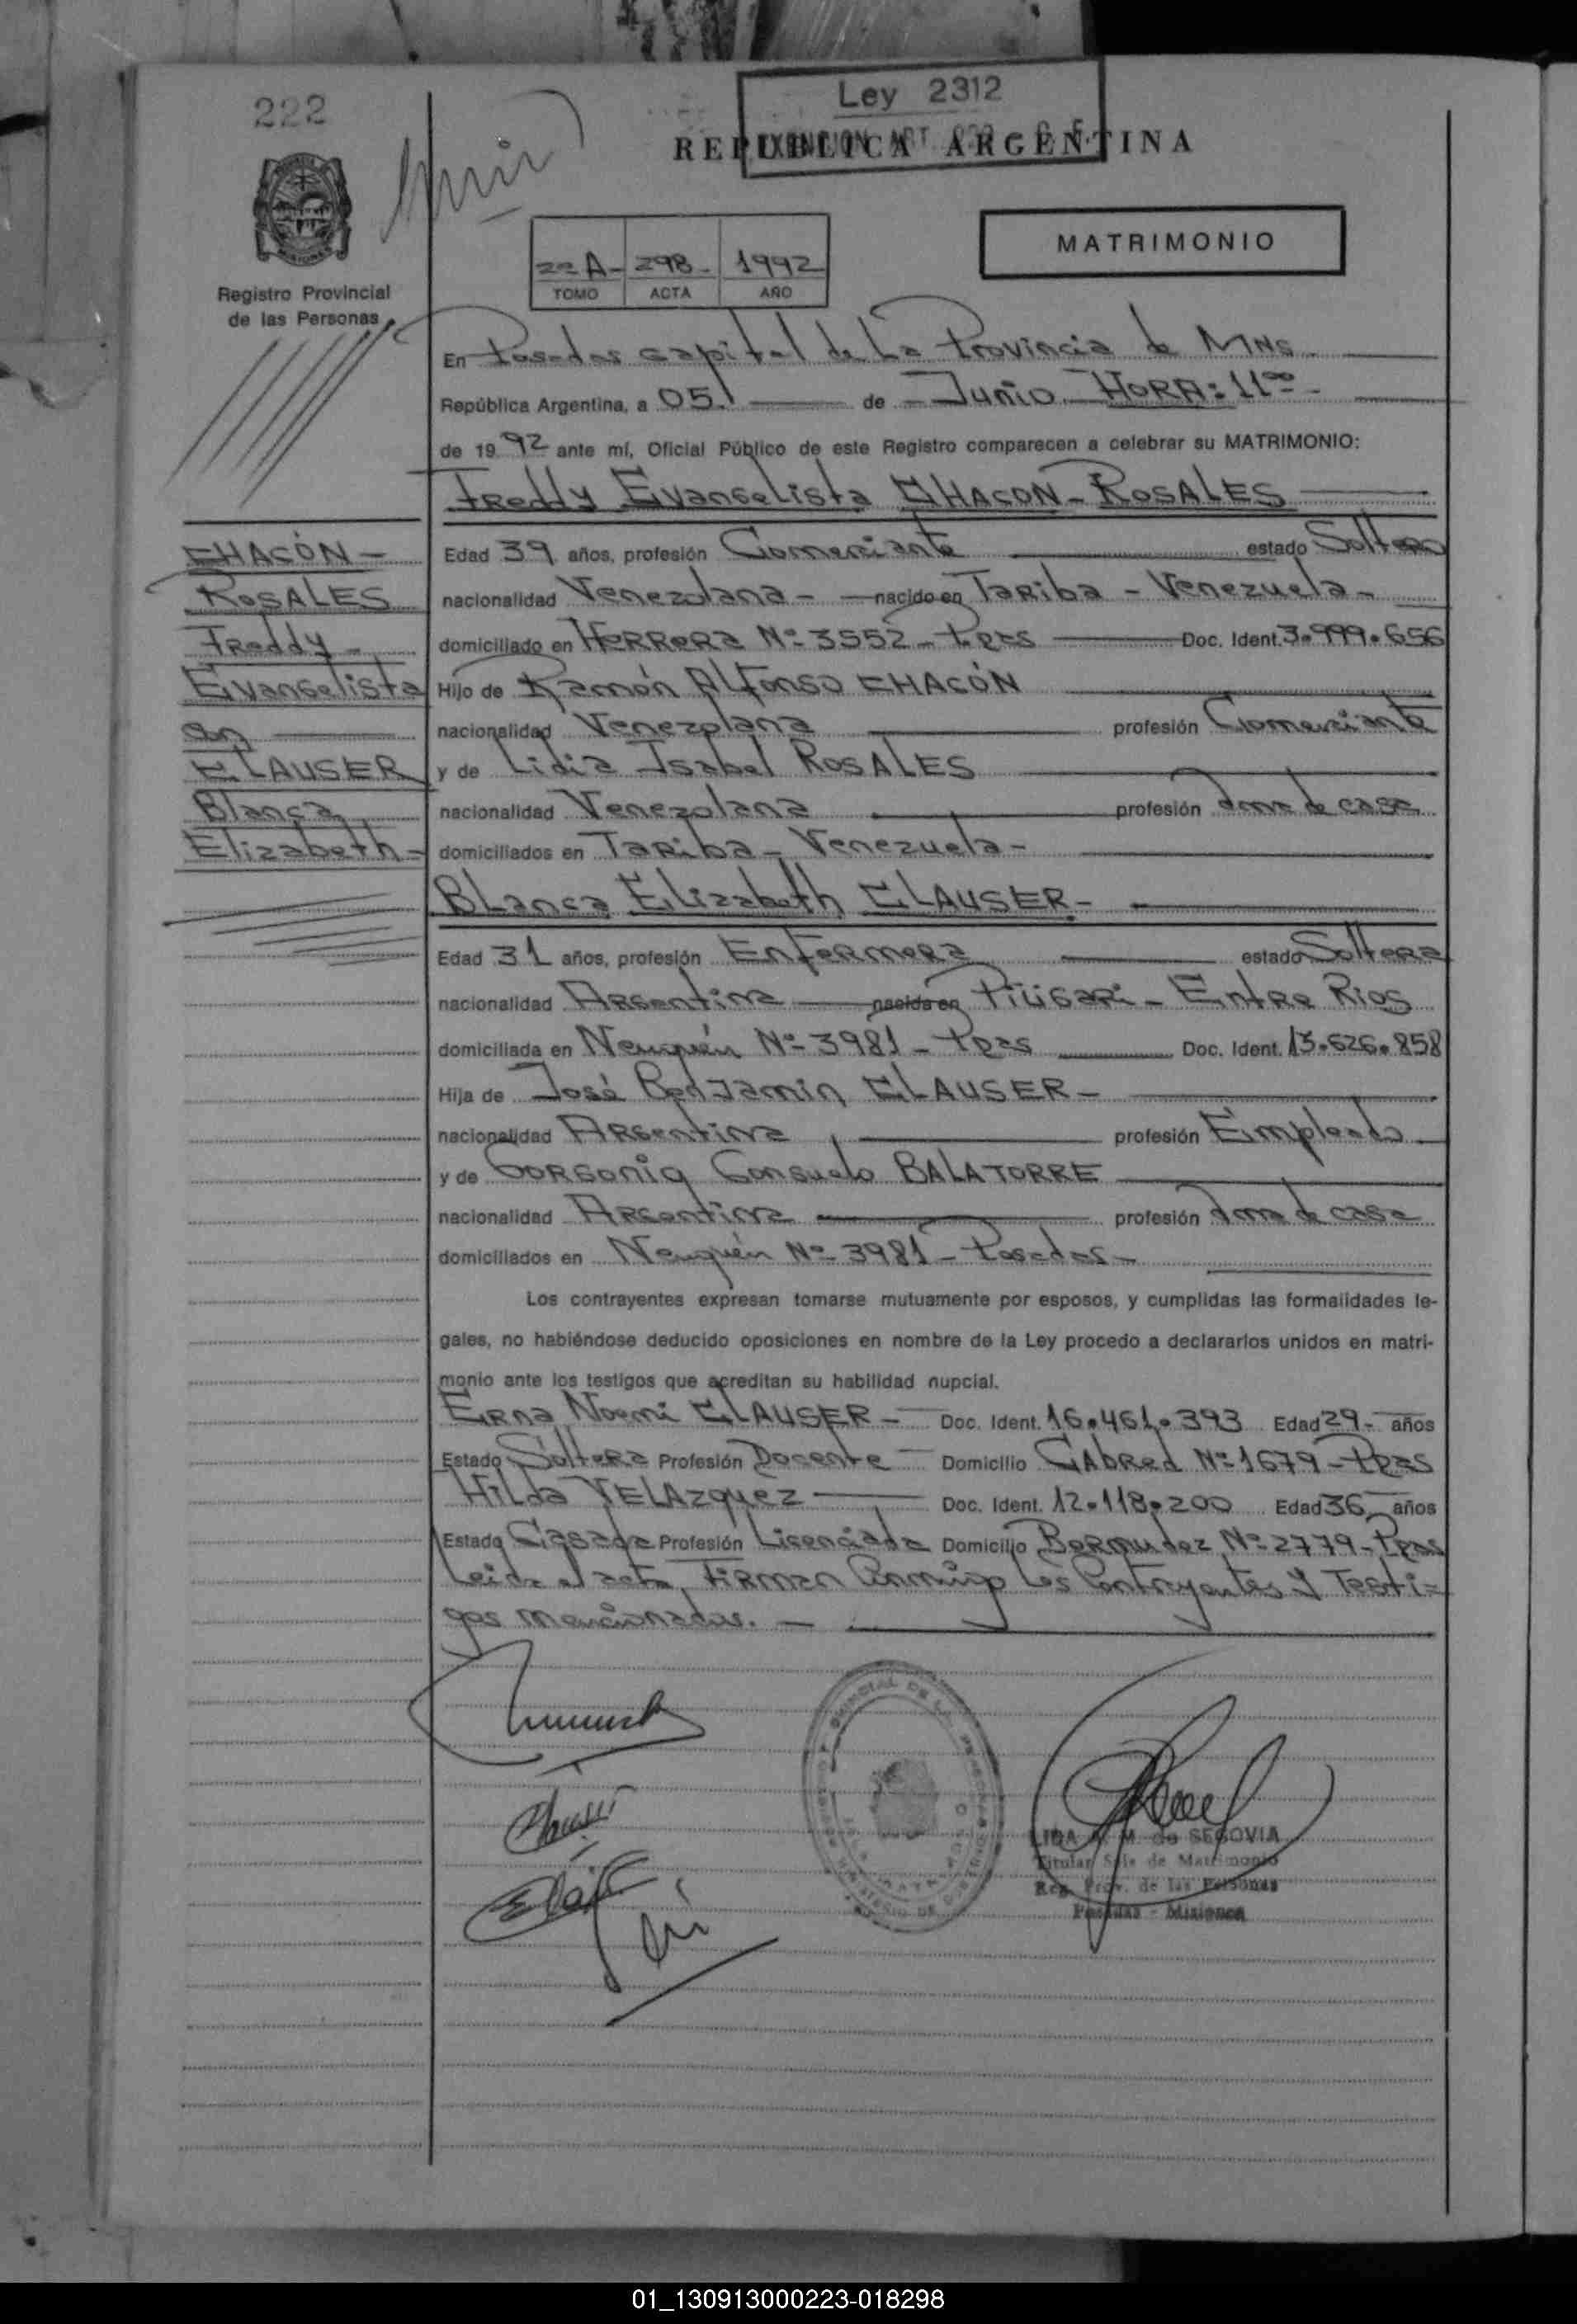 222
Ley 2312
REPUBLICA ARGENTINA
MATRIMONIO
2º A- 298- 1992
TOMO ACTA AÑO
Registro Provincial
de las Personas
En Posadas capital de La Provincia de MNS
República Argentina, a 05 de Junio HORA: 11ºº-
de 1992 ante mí, Oficial Público de este Registro comparecen a celebrar su MATRIMONIO:
Freddy Evangelista CHACON-ROSALES
CHACÓN-
ROSALES
Freddy-
Evangelista
con
CLAUSER
Blanca
Elizabeth-
Edad 39 años, profesión Comerciante estado Soltero
nacionalidad Venezolana- nacido en Tariba - Venezuela-
domiciliado en HERRERA Nº 3552 - Pdas Doc. Ident. 3.999.656
Hijo de Ramón Alfonso CHACÓN
nacionalidad Venezolana profesión Comerciante
y de Lidia Isabel ROSALES
nacionalidad Venezolana profesión Ama de casa
domiciliados en Tariba - Venezuela-
Blanca Elizabeth CLAUSER-
Edad 31 años, profesión Enfermera estado Soltera
nacionalidad Argentina nacida en - Entre Rios
domiciliada en Neuquén Nº 3981 - Pdas Doc. Ident. 13.626.858
Hija de José Benjamin CLAUSER-
nacionalidad Argentina profesión Empleado
y de Gorgonia Consuelo BALATORRE
nacionalidad Argentina profesión Ama de casa
domiciliados en Neuquén Nº 3981 - Posadas-
Los contrayentes expresan tomarse mutuamente por esposos, y cumplidas las formalidades le-
gales, no habiéndose deducido oposiciones en nombre de la Ley procedo a declararlos unidos en matri-
monio ante los testigos que acreditan su habilidad nupcial.
Erna Noemi CLAUSER- Doc. Ident. 16.461.393 Edad 29- años
Estado Soltera Profesión Docente Domicilio Cabred Nº 1679 - Pdas
Hilda VELAzquez Doc. Ident. 12.118.200 Edad 36 años
Estado Casada Profesión Licenciada Domicilio Bermudez Nº 2779 - Pdas
Leida el acta, Firman Conmigo Los Contrayentes y Testi-
gos mencionados.-
LIDA A. M. de SEGOVIA
Titular Sala de Matrimonio
Reg. Prov. de las Personas
Posadas - Misiones
01_130913000223-018298